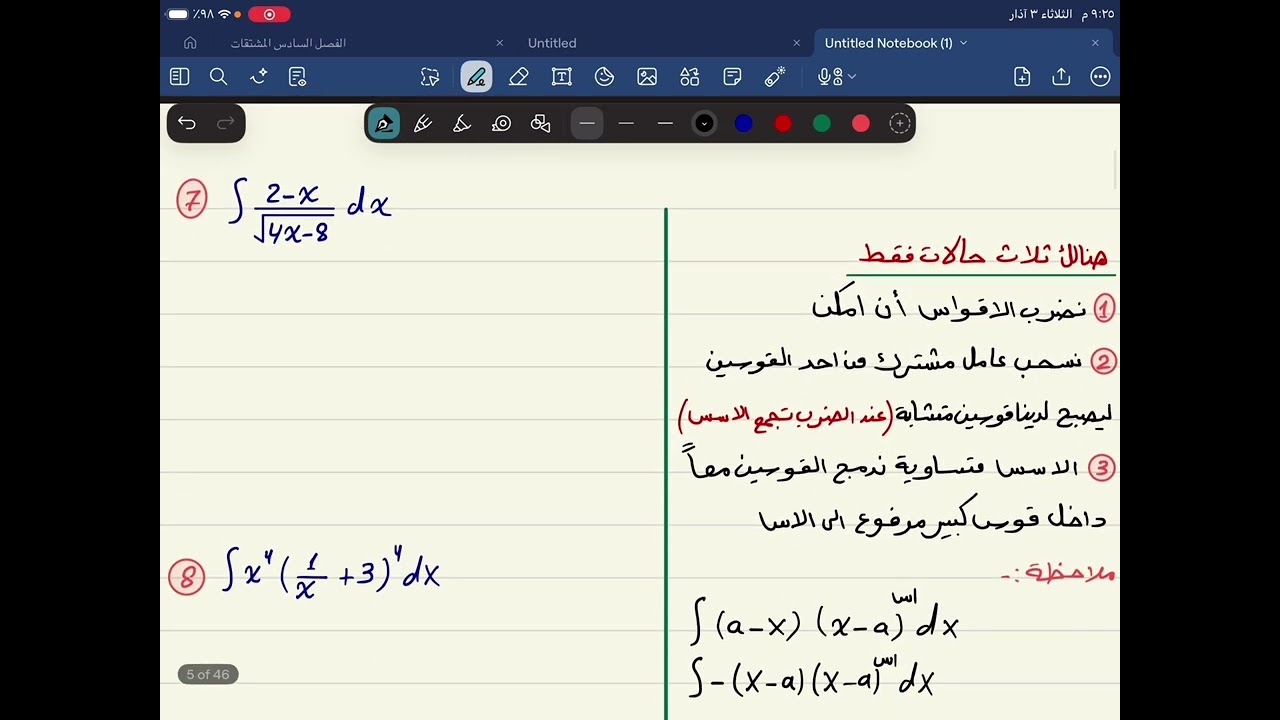 ٩:٢٥ م الثلاثاء ٣ آذار
٪٩٨
الفصل السادس المشتقات
Untitled
Untitled Notebook (1)
7 ∫ (2-x)/√(4x-8) dx
8 ∫ x⁴ (1/x + 3)⁴ dx
هنالك ثلاث حالات فقط
1 نضرب الاقواس أن امكن
2 نسحب عامل مشترك من احد القوسين
ليصبح لدينا قوسين متشابة (عند الضرب تجمع الاسس)
3 الاسس متساوية ندمج القوسين معاً
داخل قوس كبير مرفوع الى الاس
ملاحظة :-
∫ (a-x) (x-a)^اس dx
∫ -(x-a)(x-a)^اس dx
5 of 46